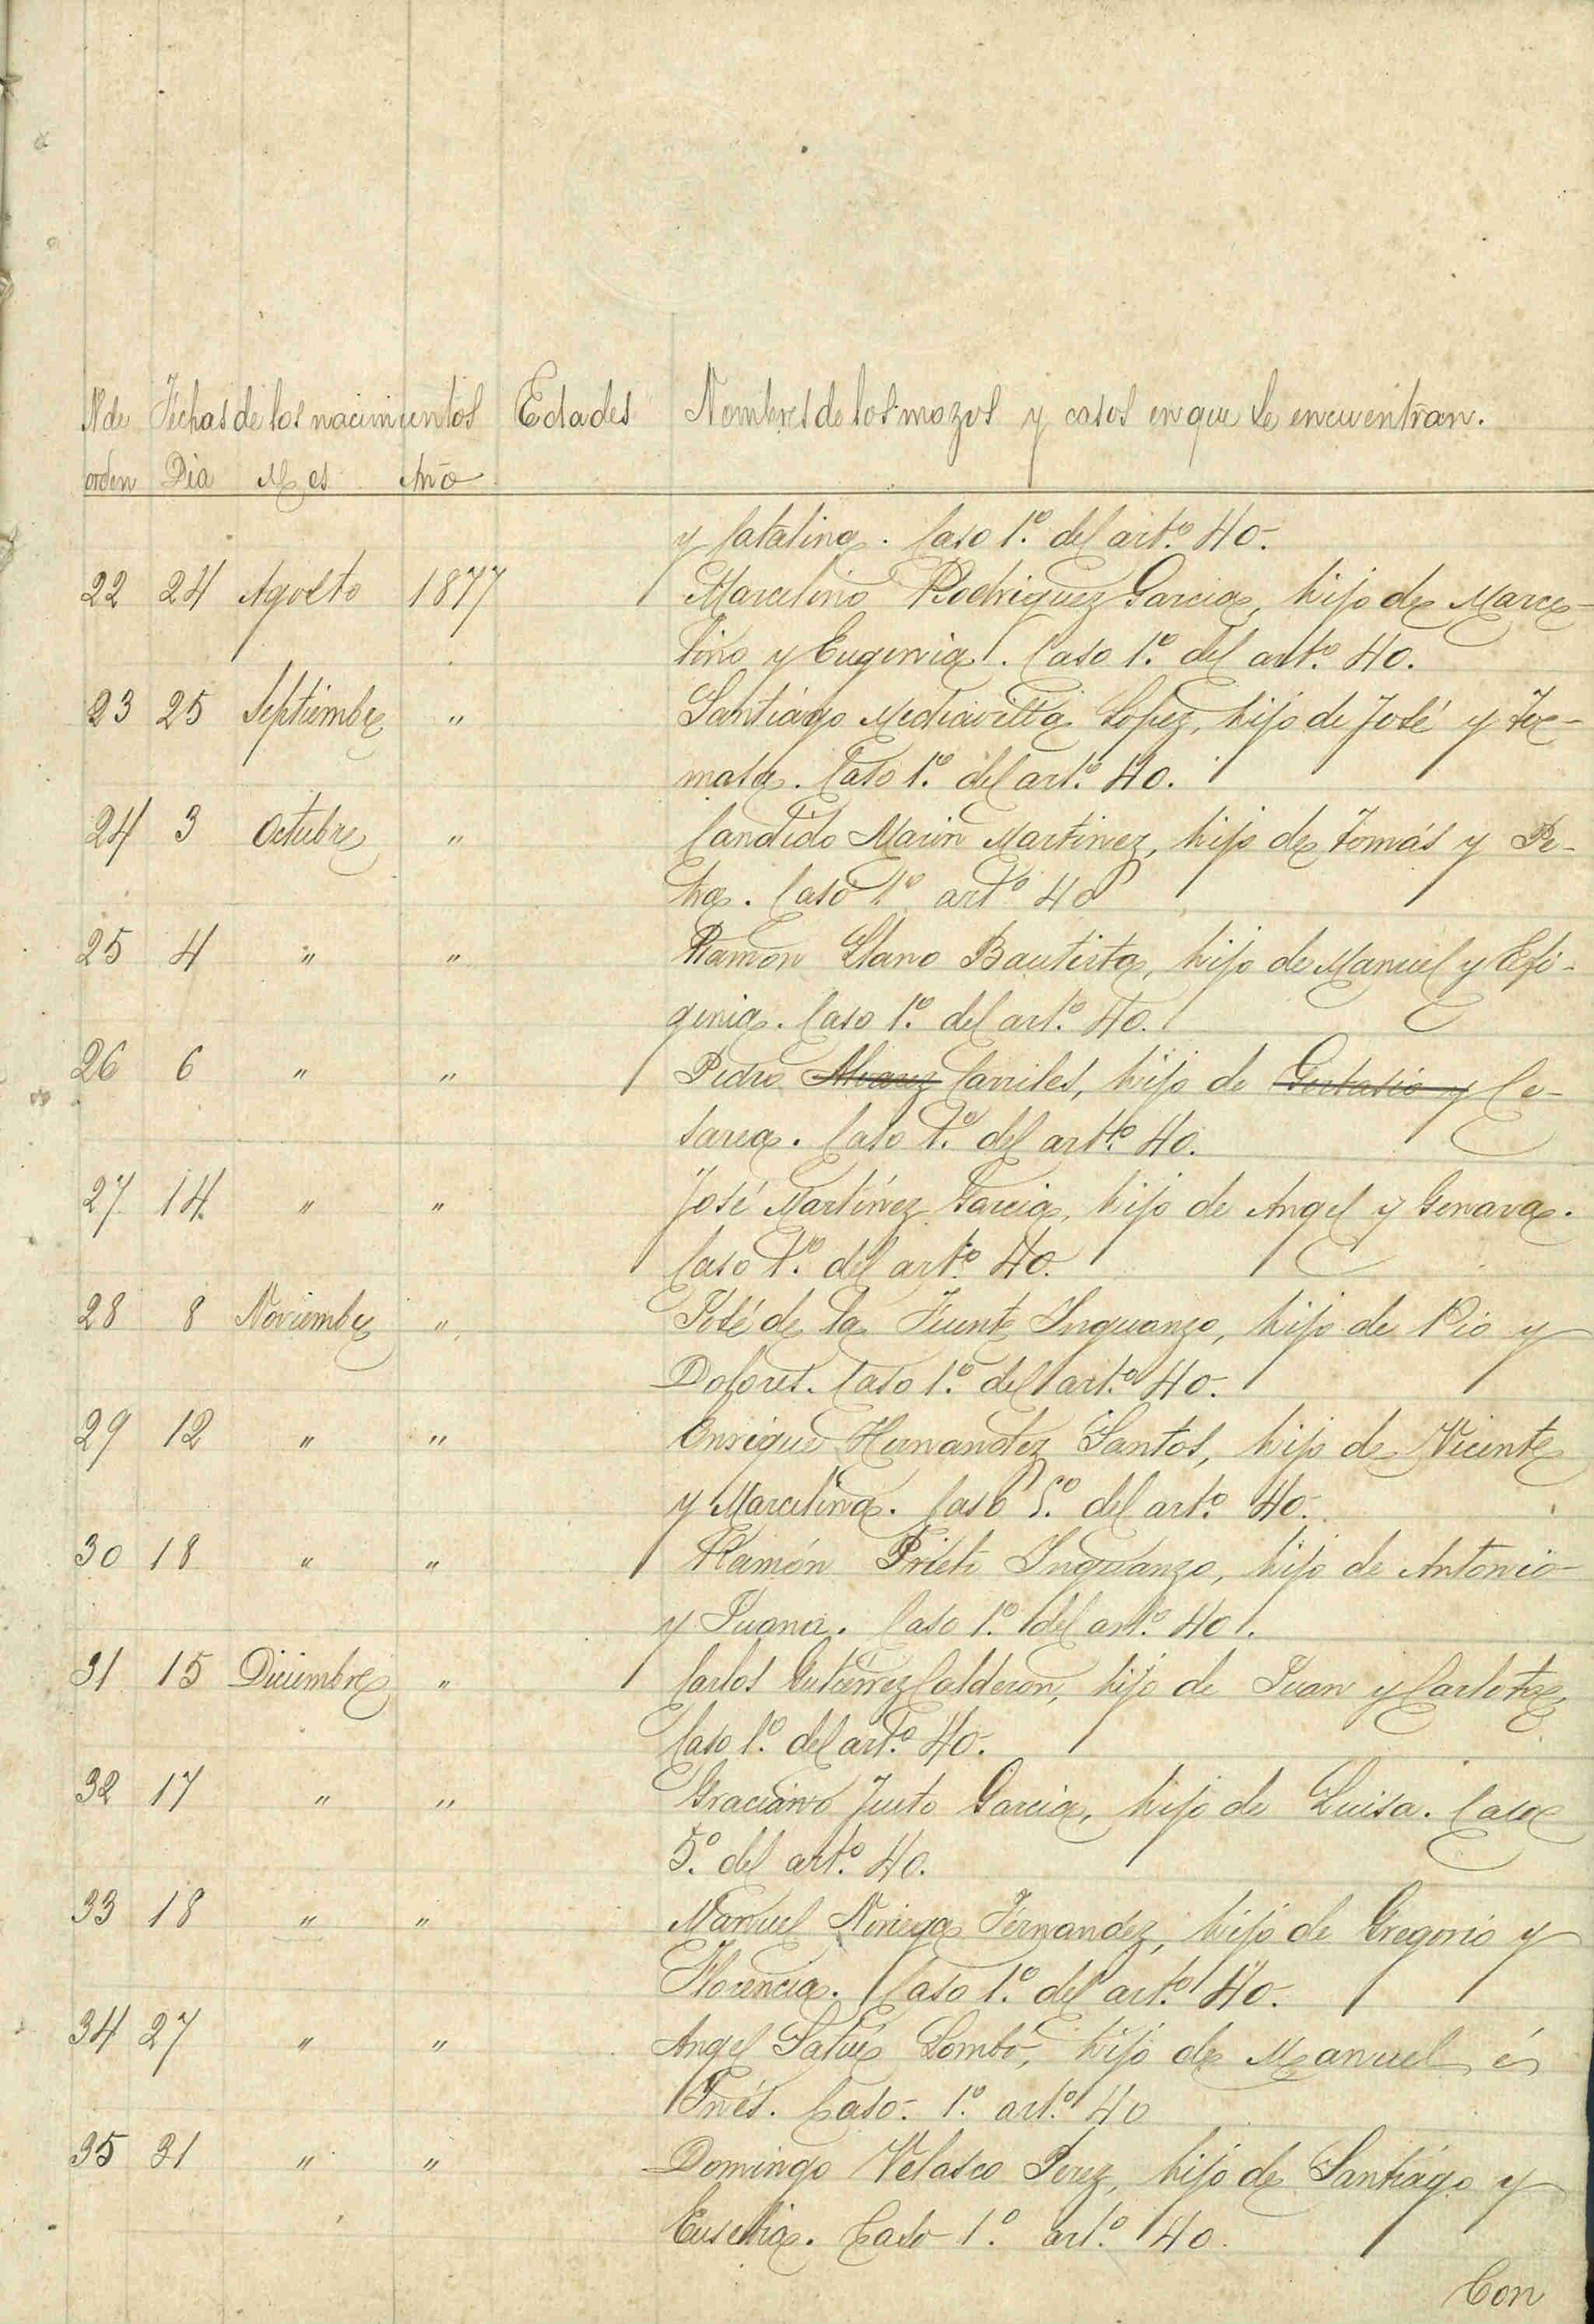 N de Fechas de los nacimientos Edades Nombres de los mozos y casos en que se encuentran.
orden Dia Mes Año
y Catalina. Caso 1.º del art.º 40.
22 24 Agosto 1877 Marcelino Rodriguez Garcia, hijo de Marce-
lino y Eugenia. Caso 1.º del art.º 40.
23 25 Septiembre " Santiago Mediavilla Lopez, hijo de José y To-
masa. Caso 1.º del art.º 40.
24 3 Octubre " Candido Marin Martinez, hijo de Tomás y Pe-
tra. Caso 1º art.º 40
25 4 " " Ramón Llano Bautista, hijo de Manuel y Efi-
genia. Caso 1.º del art.º 40.
26 6 " " Pedro Alvarez Caviles, hijo de Gertasio y Ce-
sarea. Caso 1.º del art.º 40.
27 14 " " José Martínez Garcia, hijo de Angel y Genara.
Caso 1.º del art.º 40.
28 8 Noviembre " José de la Fuente Inguanzo, hijo de Pio y
Dolores. Caso 1.º del art.º 40.
29 12 " " Enrique Hernandez Santos, hijo de Vicente
y Marcelina. Caso 5.º del art.º 40.
30 18 " " Ramón Prieto Inguanzo, hijo de Antonio
y Juana. Caso 1.º del art.º 40.
31 15 Diciembre " Carlos Gutierrez Calderon, hijo de Juan y Carlota,
Caso 1.º del art.º 40.
32 17 " " Graciano Justo Garcia, hijo de Luisa. Caso
5.º del art.º 40.
33 18 " " Manuel Noriega Fernandez, hijo de Gregorio y
Florencia. Caso 1.º del art.º 40.
34 27 " " Angel Satué Lombó, hijo de Manuel é
Inés. Caso. 1.º art.º 40
35 31 " " Domingo Velasco Perez, hijo de Santiago y
Eusebia. Caso 1.º art.º 40.
Con